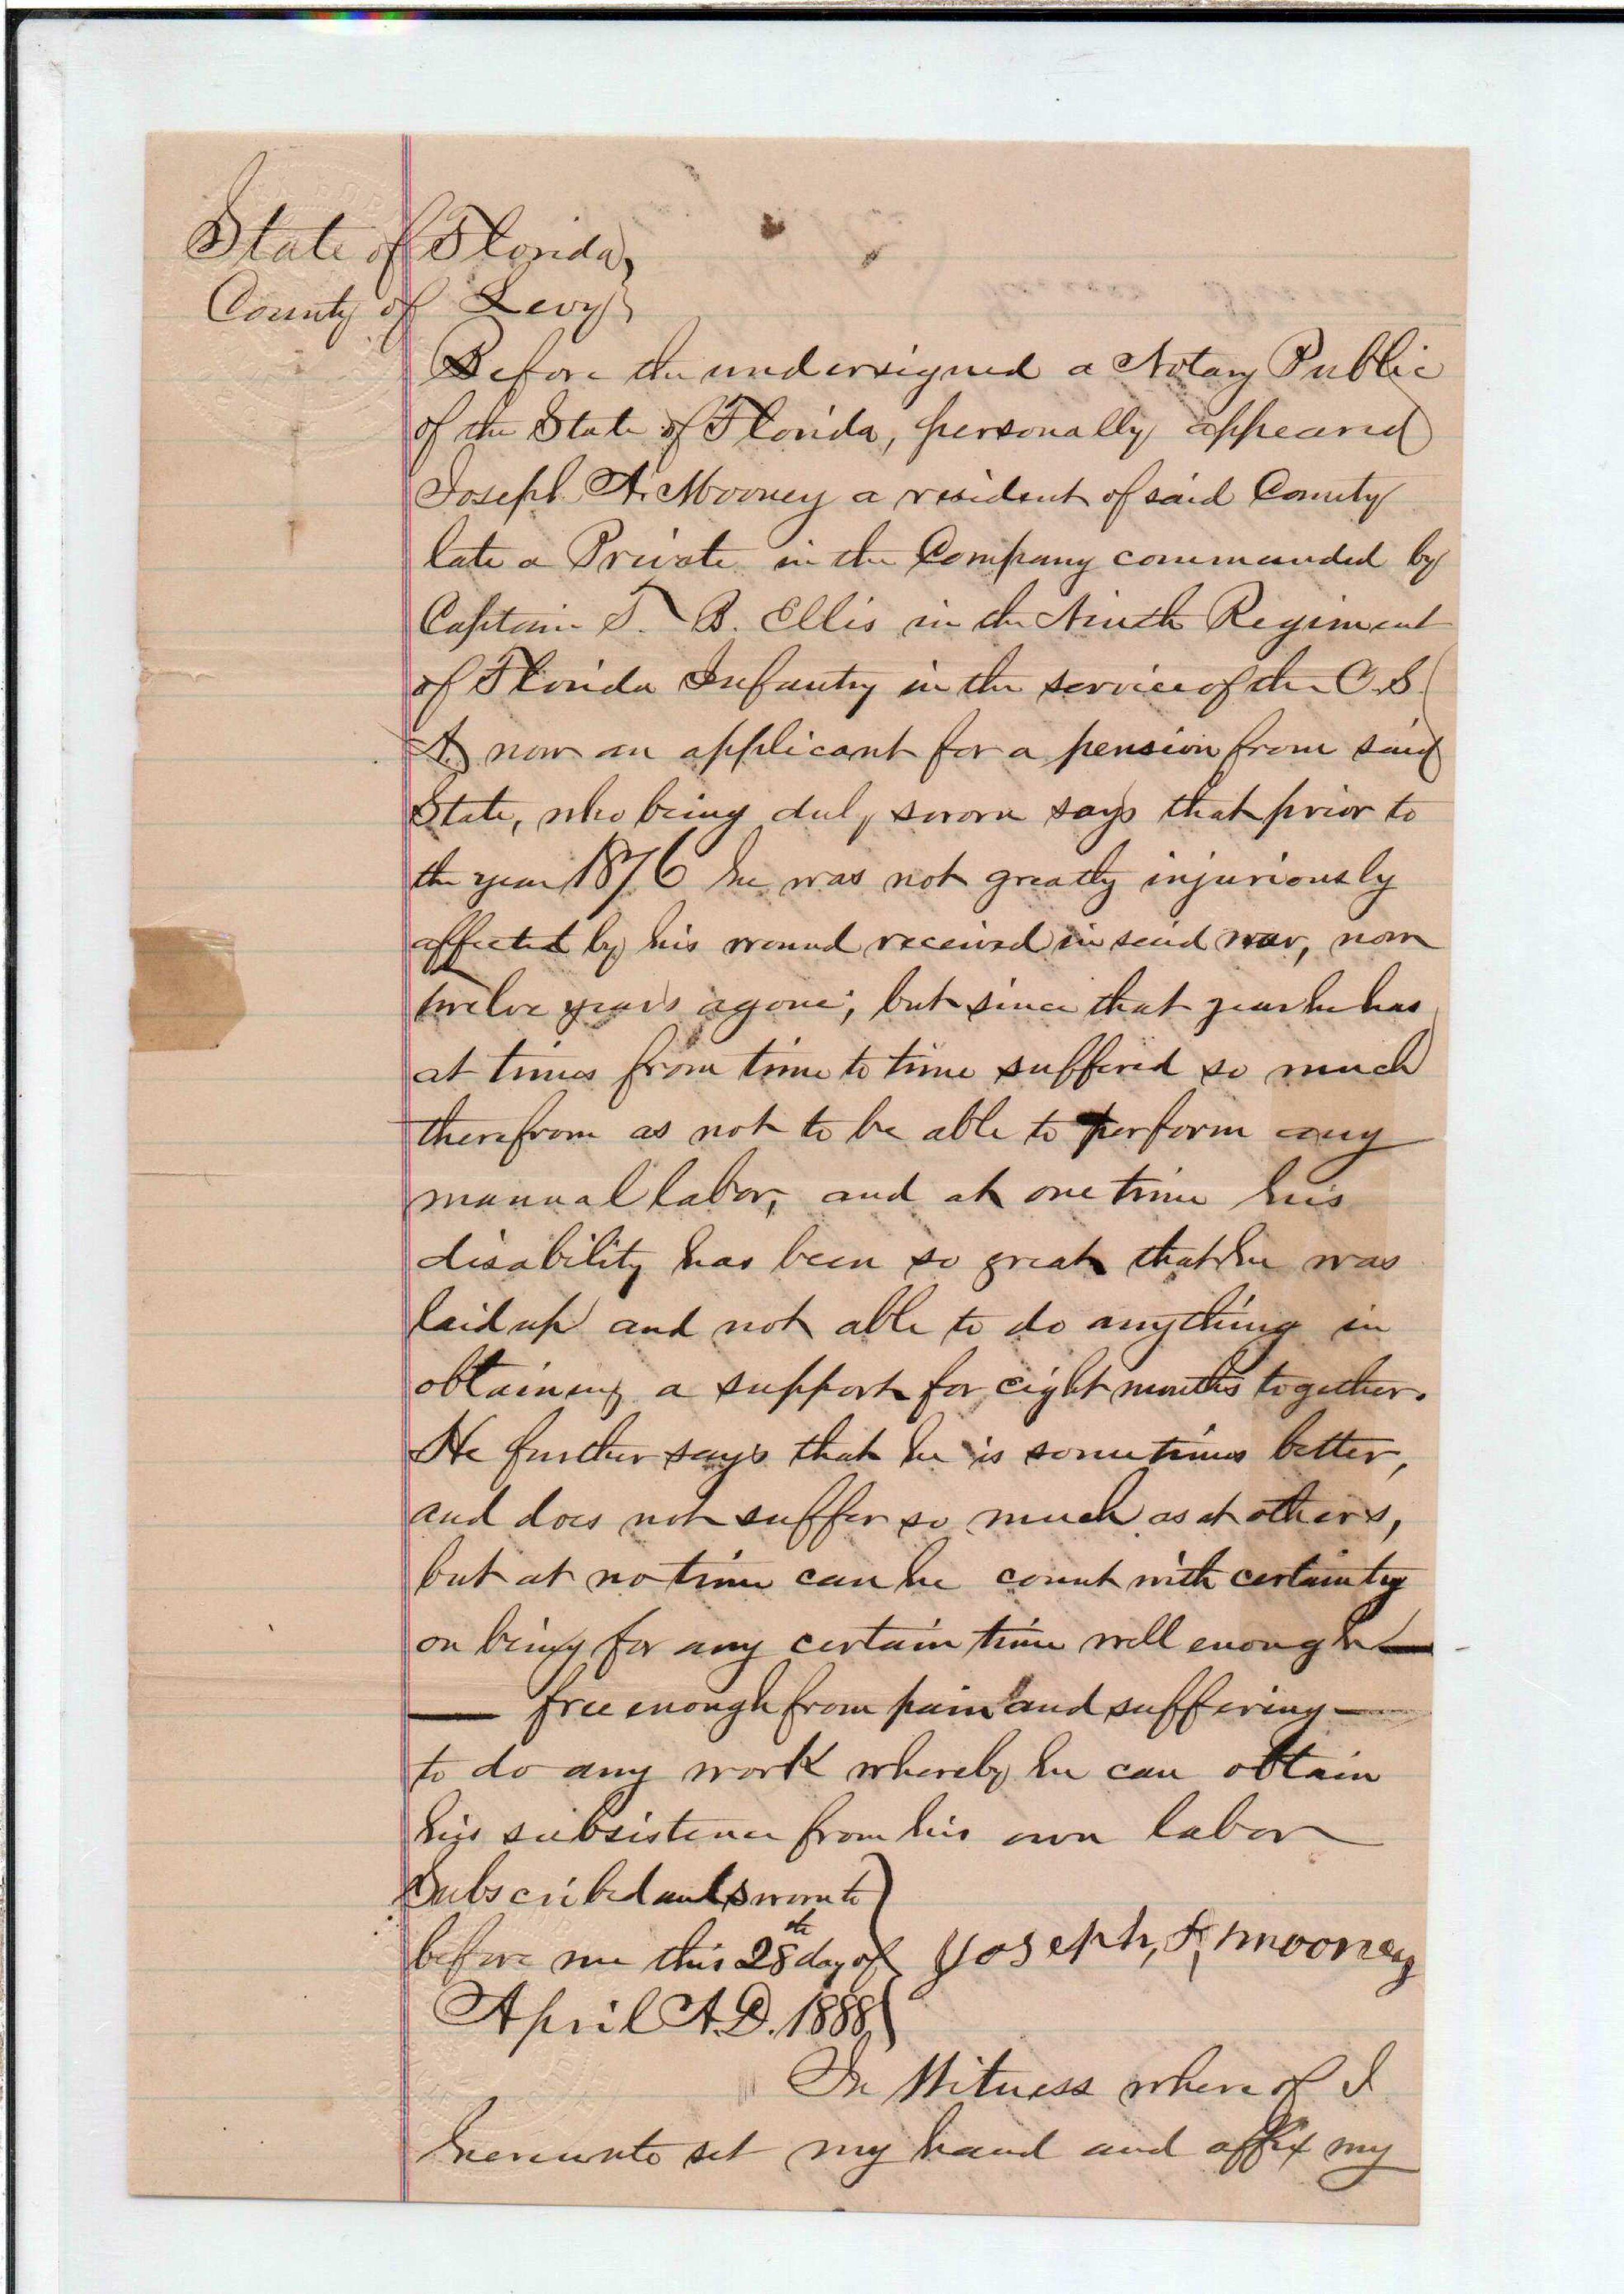 State of Florida,
County of Levy
Before the undersigned a Notary Public
of the State of Florida, personally appeared
Joseph A. Mooney a resident of said County
late a Private in the Company commanded by
Captain T. B. Ellis in the Ninth Regiment
of Florida Infantry in the service of the C. S.
A. now an applicant for a pension from said
State, who being duly sworn says that prior to
the year 1876 he was not greatly injuriously
affected by his wound received in said war, now
twelve years agone; but since that year he has
at times from time to time suffered so much
therefrom as not to be able to perform any
manual labor, and at one time his
disability has been so great that he was
laid up and not able to do anything in
obtaining a support for eight months together.
He further says that he is sometimes better,
and does not suffer so much as at others,
but at no time can he count with certainty
on being for any certain time well enough —
— free enough from pain and suffering —
to do any work whereby he can obtain
his subsistence from his own labor
Subscribed and sworn to
before me this 28th day of Joseph, A, mooney
April A.D. 1888
In Witness where of I
hereunto set my hand and affix my